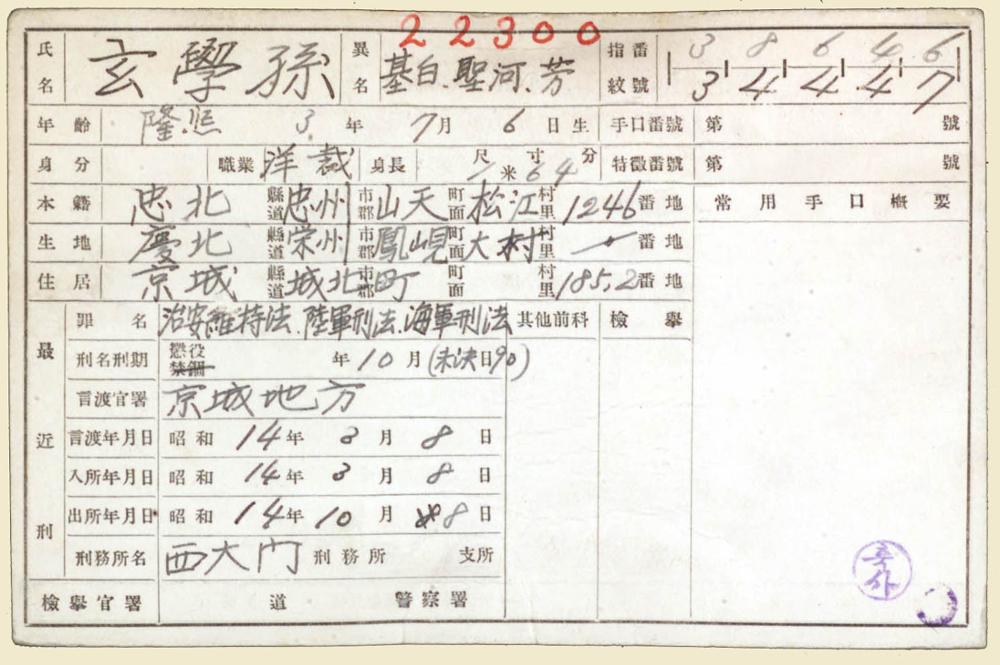 22300
氏名 玄學孫 異名 基白.聖河.芳 指紋番號 3 8 6 4 6
3 4 4 4 7
年齡 隆熙 3年 7月 6日生 手口番號 第 號
身分 職業 洋裁 身長 尺寸分 1米64 特徵番號 第 號
本籍 忠北縣道 忠州市郡 山天町面 松江村里 1246番地 常用手口槪要
生地 慶北縣道 榮州市郡 鳳峴町面 大村村里 番地
住居 京城縣道 城北町市郡 町面 村里 185,2番地
最近刑 罪名 治安維持法.陸軍刑法.海軍刑法 其他前科 檢擧
刑名刑期 懲役 禁錮 年10月(未決日90)
言渡官署 京城地方
言渡年月日 昭和14年3月8日
入所年月日 昭和14年3月8日
出所年月日 昭和14年10月8日
刑務所名 西大門刑務所 支所
檢擧官署 道 警察署